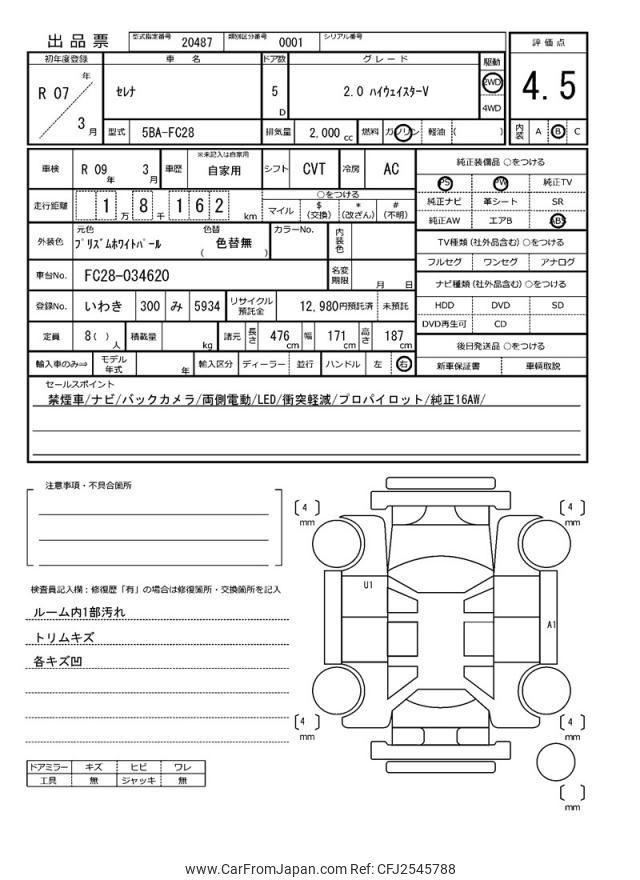 出品票 型式指定番号 20487 類別区分番号 0001 シリアル番号
評価点
4.5
内装 A B C
初年度登録 車名 ドア数 グレード 駆動
R 07 年 3 月
セレナ 5 D 2.0 ハイウェイスターV
2WD
4WD
型式 5BA-FC28 排気量 2,000 cc 燃料 ガソリン 軽油 ( )
車検 R 09 年 3 月 車歴 ※未記入は自家用 自家用 シフト CVT 冷房 AC
走行距離 1 万 8 千 1 6 2 km
○をつける
マイル $ (交換) * (改ざん) # (不明)
外装色 元色 ﾌﾟﾘｽﾞﾑﾎﾜｲﾄﾊﾟｰﾙ 色替 ( 色替無 ) カラーNo. 内装色
車台No. FC28-034620 名変期限 月 日
登録No. いわき 300 み 5934 リサイクル預託金 12,980円預託済 未預託
定員 8( ) 人 積載量 kg 諸元 長さ 476 cm 幅 171 cm 高さ 187 cm
輸入車のみ⇒ モデル年式 年 輸入区分 ディーラー 並行 ハンドル 左 右
純正装備品 ○をつける
PS PW 純正TV
純正ナビ 革シート SR
純正AW エアB ABS
TV種類 (社外品含む) ○をつける
フルセグ ワンセグ アナログ
ナビ種類 (社外品含む) ○をつける
HDD DVD SD
DVD再生可 CD
後日発送品 ○をつける
新車保証書 車輌取説
セールスポイント
禁煙車/ナビ/バックカメラ/両側電動/LED/衝突軽減/プロパイロット/純正16AW/
注意事項・不具合箇所
検査員記入欄：修復歴「有」の場合は修復箇所・交換箇所を記入
ルーム内1部汚れ
トリムキズ
各キズ凹
ドアミラー キズ ヒビ ワレ
工具 無 ジャッキ 無
[ 4 ] mm
[ 4 ] mm
U1
A1
[ 4 ] mm
[ 4 ] mm
[ ] mm
www.CarFromJapan.com Ref: CFJ2545788